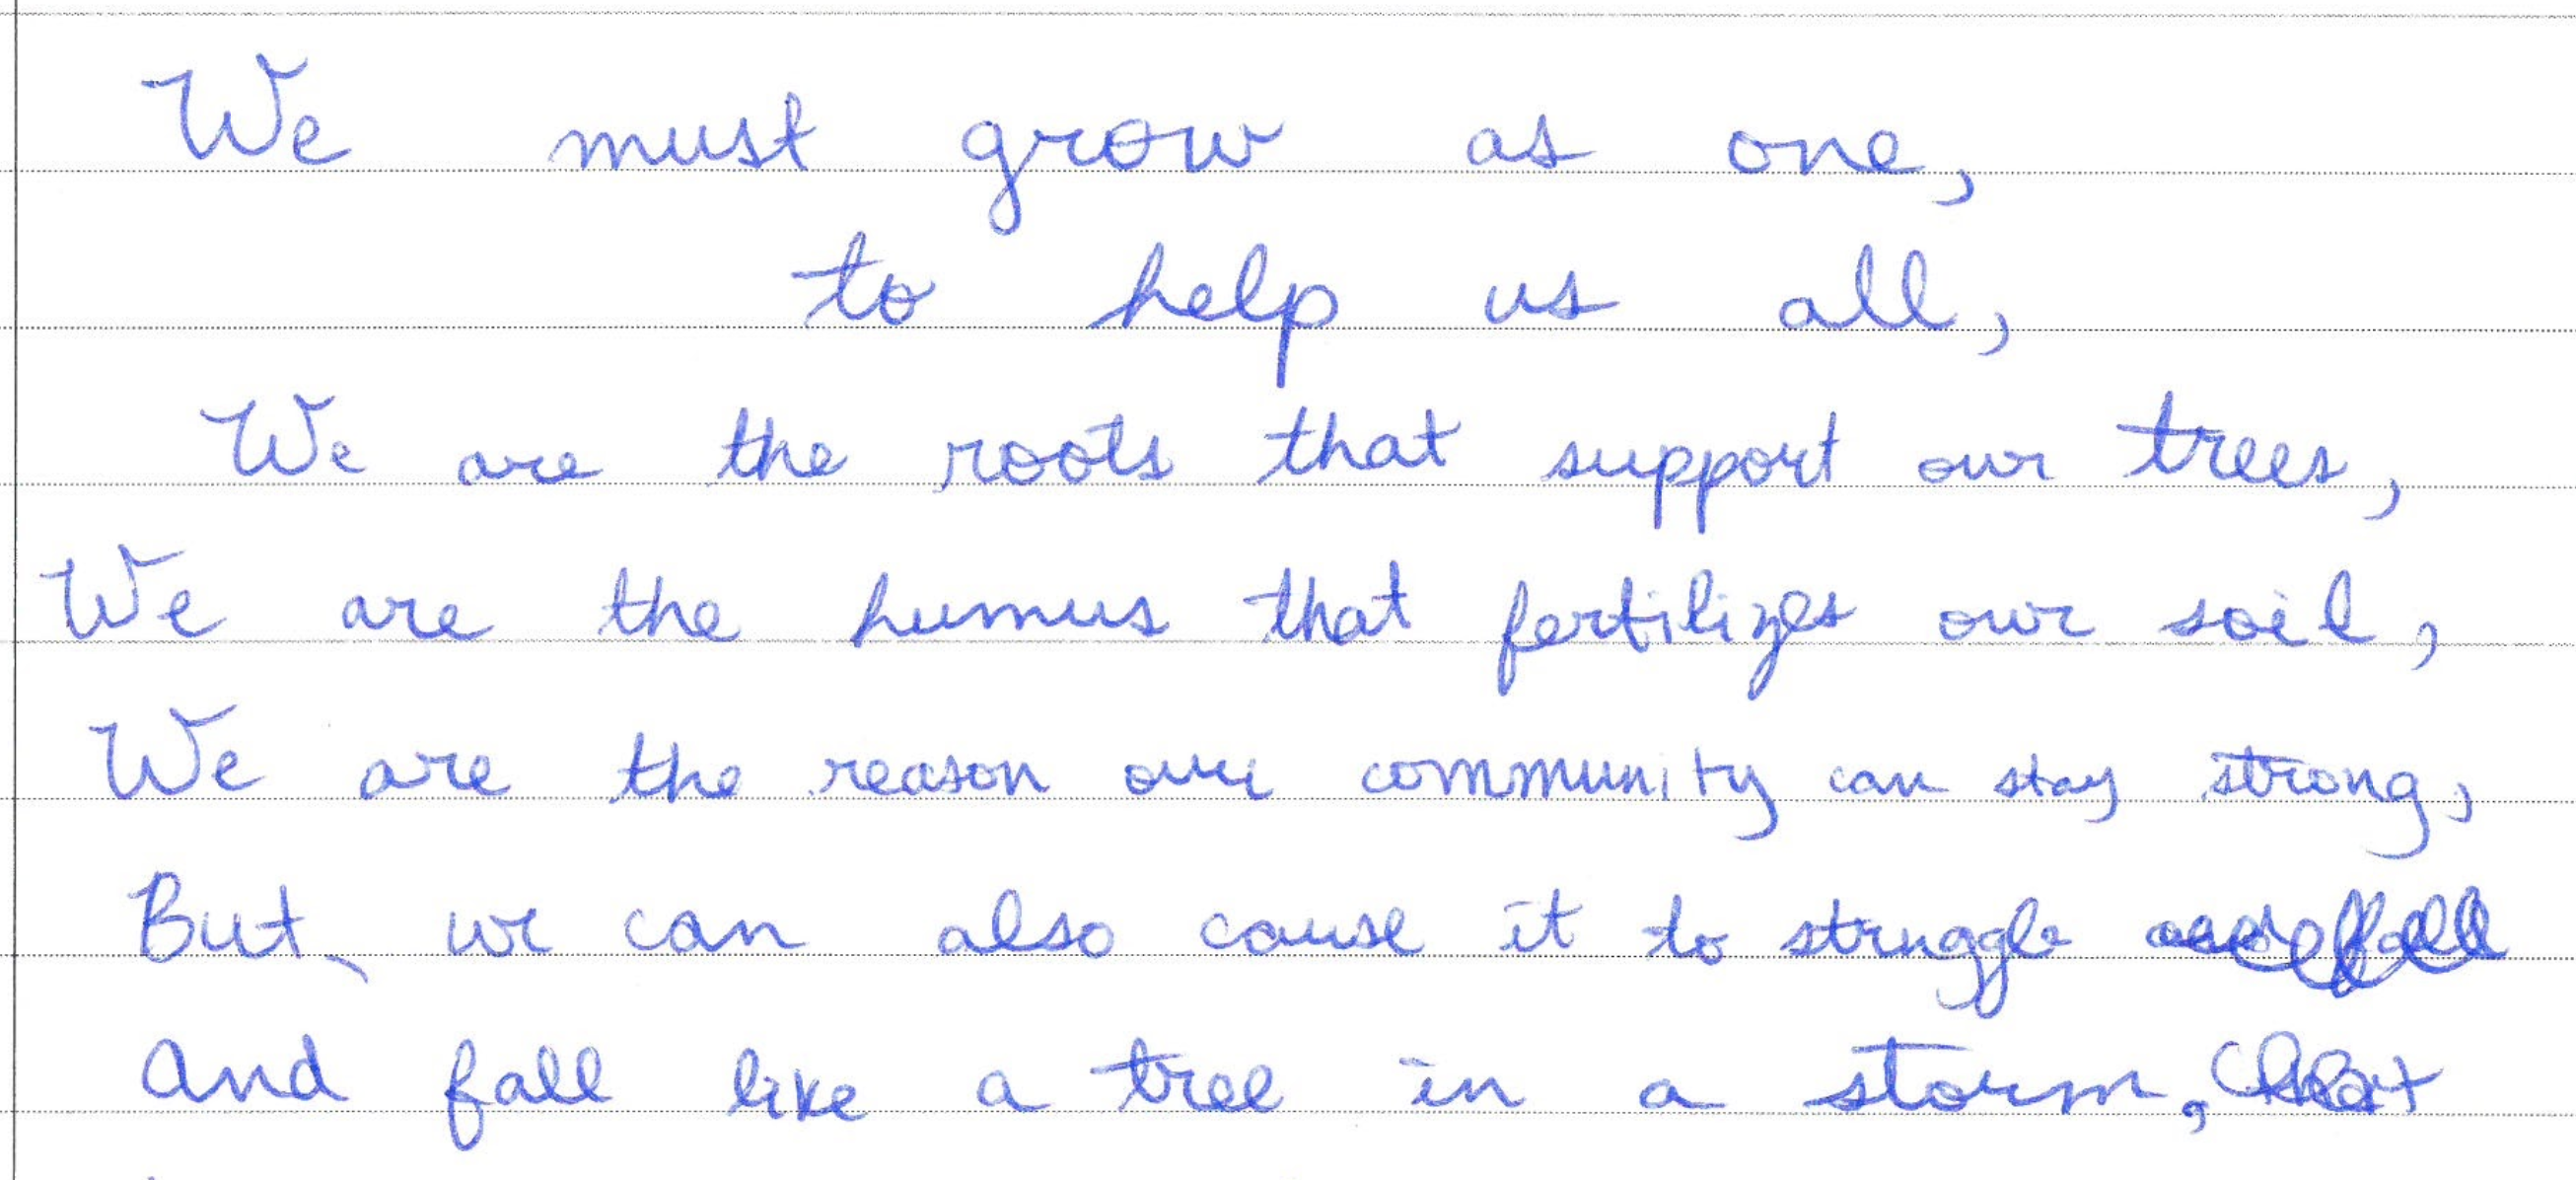 We must grow as one,
to help us all,
We are the roots that support our trees,
We are the humus that fertilizes our soil,
We are the reason our community can stay strong,
But, we can also cause it to struggle
and fall like a tree in a storm,